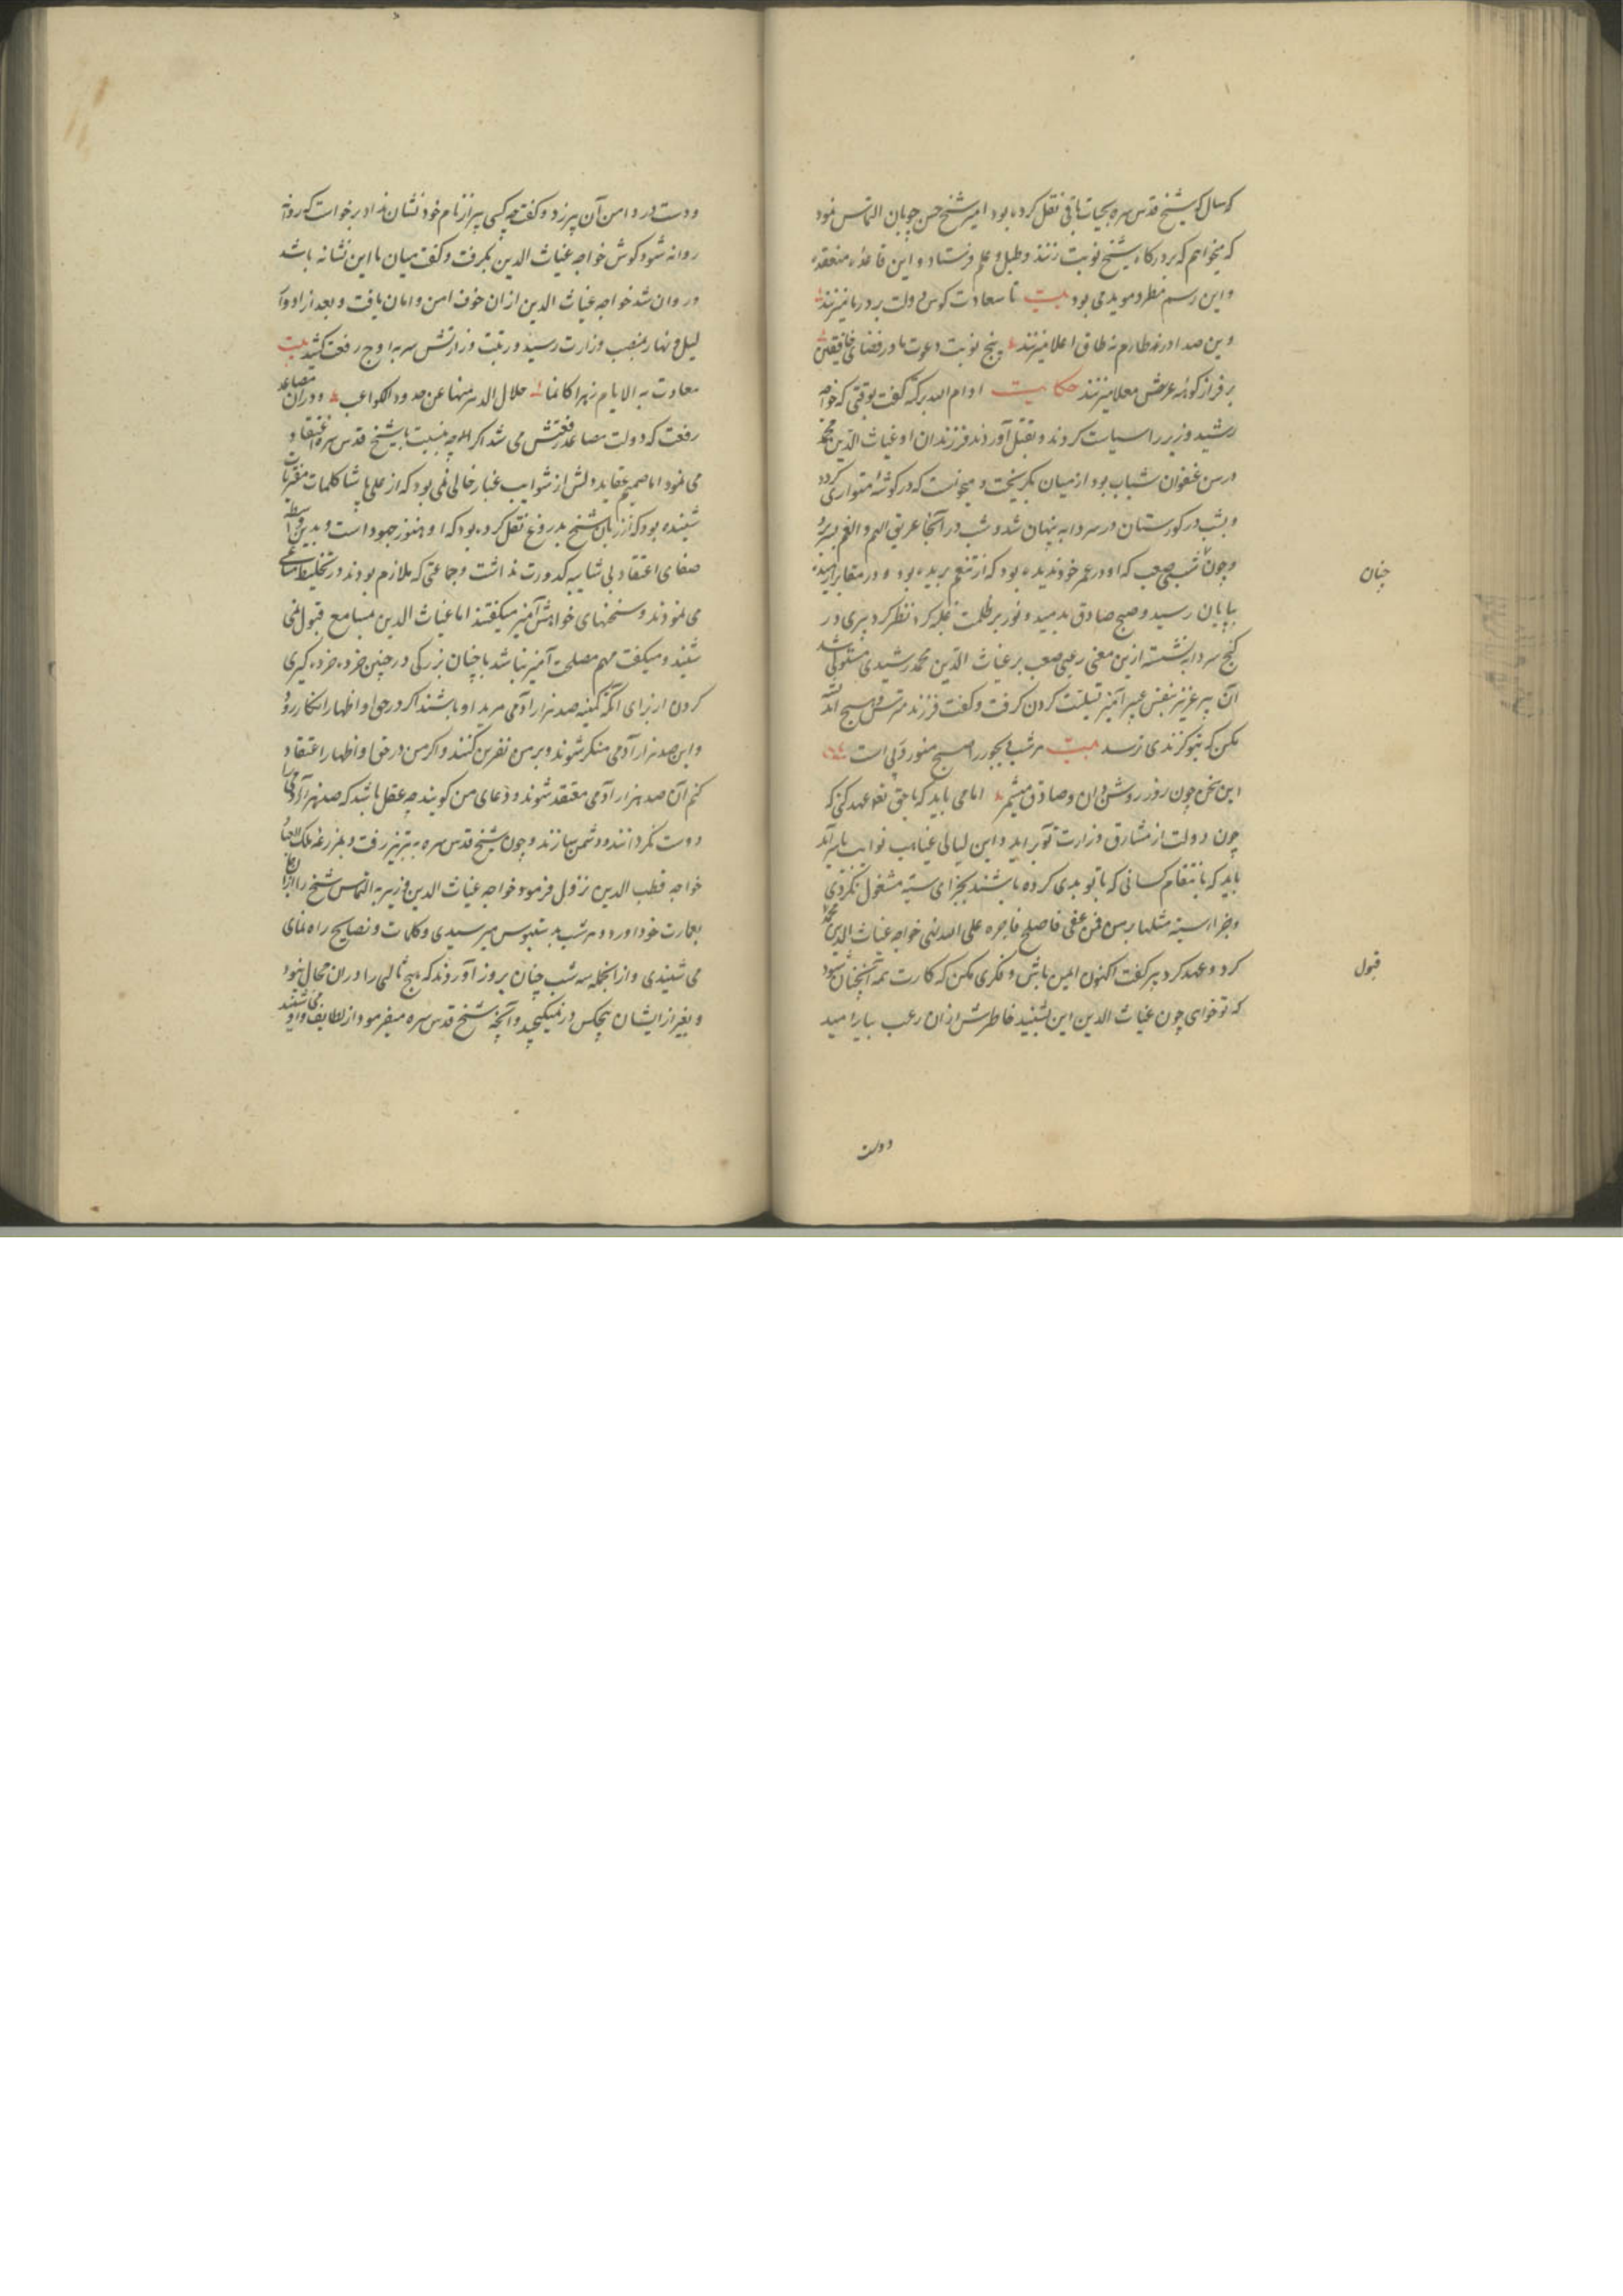 که سال که شیخ قدس سره بحیات باقی نقل کرده بود امیر شیخ حسن چوپان التماس نمود
که میخواهم که بر درکاه شیخ نوبت زنند و طبل و علم فرستاد و این قاعده منعقد
و این رسم مطرد موبد می بود بیت تا سعادت کوس دولت بر در ما میزنند
وین صدا در نه طارم نه طاق اعلا میزنند پنج نوبت دعوت ما در فضای خافقین
بر فراز کوشه عرش معلا میزنند حکایت ادام الله برکته کفت بوقتی که خواجه
رشید وزیر را سیاست کردند و بقتل آوردند فرزندان او غیاث الدین محمد
در سن عنفوان شباب بود از میان بکریخت و میخواست که در کوشه متواری کردد
و بشب در کورستان در سردابه پنهان شد و شب در آنجا غریق الهم و الغم بسر برد
و چون شبی صعب که او در عمر خود ندیده بود که از تنعم بریده بود و در مقابر
چنان
بپایان رسید و صبح صادق بدمید و نور بر ظلمت غلبه کرد نظر کرد پیری در
کنج سردابه نشسته ازین معنی رعبی صعب بر غیاث الدین محمد رشیدی مستولی شد
آن پیر عزیز بنفس عبیر آمیز تسلیت کردن کرفت و کفت فرزند مترس و هیچ اندیشه
مکن که بتو کزندی نرسد بیت هر شب دیجور را صبح منور در پی است
این سخن چون روز روشن دان و صادق میشمر اما می باید که با حق تعالی عهد کنی که
چون دولت از مشارق وزارت تو براید و این لیالی غیاهب نوایب باسر آید
باید که بانتقام کسانی که با تو بدی کرده باشند بجزای سیئه مشغول نکردی
و جزاء سیئة سیئة مثلها پس فمن عفی و اصلح فاجره علی الله نهی خواجه غیاث الدین محمد
قبول
کرد و عهد کرد پیر کفت اکنون ایمن باش و فکری مکن که کارت همه آنچنان شود
که تو خواهی چون غیاث الدین این بشنید خاطرش از آن رعب بیارامید
دوست
و دست در دامن آن پیر زد و کفت چه کسی پیر از نام خود نشان نداد برخواست که روانه
روانه شود کوش خواجه غیاث الدین بکرفت و کفت میان ما این نشانه باشد
و روان شد خواجه غیاث الدین از ان خوف امن و امان یافت و بعد از ادوار
لیل و نهار بمنصب وزارت رسید و رتبت وزارتش سر به اوج رفعت کشید بیت
معاوت به الایام زهرا کانما جلال الدهر منها عن حدود الکواعب و دران مصاعد
رفعت که دولت مصاعد رفعتش می شد اکرچه بنسبت با شیخ قدس سره اعتقاد
می نمود اما صمیم عقاید دلش از شوایب غبار خالی نمی بود که از علی پاشا کلمات
شنیده بود که از زبان شیخ بدروغ نقل کرده بود که او هنوز جهود است و بدین واسطه
صفای اعتقاد بی شایبه کدورت نداشت و جماعتی که ملازم بودند در تخلیط مساعی
می نمودند و سخنهای خواهش آمیز میکفتند اما غیاث الدین بمسامع قبول نمی
شنید و میکفت مهم مصلحت آمیز نباشد با چنان بزرکی در چنین خرده خرده کیری
کردن از برای آنکه کمینه صد هزار آدمی مرید او باشند اکر در حق او اظهار انکار رود
و این صد هزار آدمی منکر شوند و بر من نفرین کنند و اکر من در حق او اظهار اعتقاد
کنم آن صد هزار آدمی معتقد شوند و دعای من کویند چه عقل باشد که صد هزار آدمی را
دوست نکردانند و دشمن سازند و چون شیخ قدس سره به تبریز رفت و بمزرعه
خواجه قطب الدین نزول فرمود خواجه غیاث الدین وزیر به التماس شیخ را
بعمارت خود اورد و هر شب بدستبوس میرسیدی و کلمات و نصایح راه نمای
می شنیدی و از انجمله سه شب چنان بروز آوردند که هیچ ثالثی را در ان مجال نبود
و بغیر از ایشان هیچکس در نمیکنجید و آنچه شیخ قدس سره میفرمود از لطایف می شنید و او